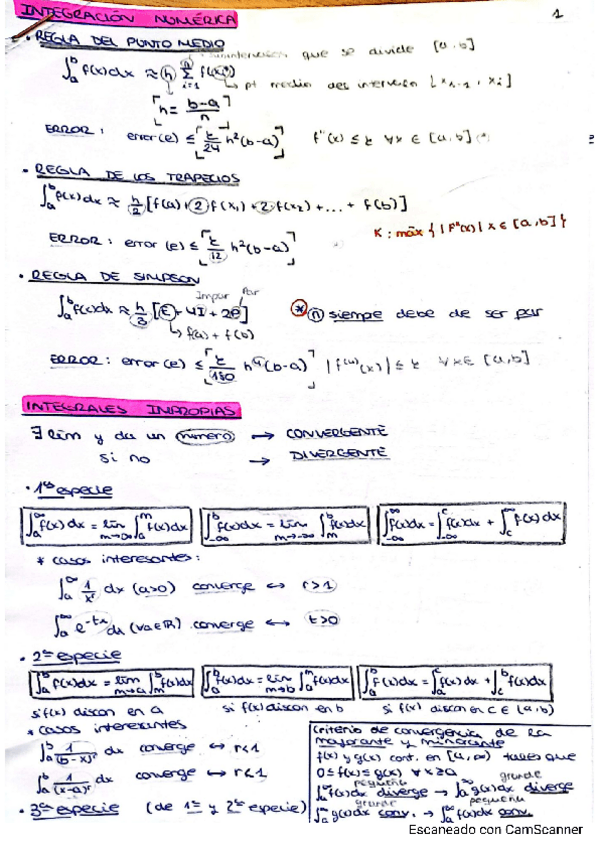 INTEGRACIÓN NUMÉRICA
1
• REGLA DEL PUNTO MEDIO
que se divide [a,b]
∫_a^b f(x)dx ≈ h Σ_{i=1}^n f(x_i*) → pt medio des intervalos [x_{i-1}, x_i]
h = (b-a)/n
ERROR: error(e) ≤ k/24 h²(b-a) f''(x) ≤ k ∀x ∈ [a,b]
• REGLA DE LOS TRAPECIOS
∫_a^b f(x)dx ≈ h/2 [f(a)+2f(x₁)+2·f(x₂)+...+f(b)]
K: máx{|f''(x)| x∈[a,b]}
ERROR: error(e) ≤ k/12 h²(b-a)
• REGLA DE SIMPSON
Impar Par
∫_a^b f(x)dx ≈ h/3 [E+4I+2P]
* n siempe debe de ser par
→ f(a)+f(b)
ERROR: error(e) ≤ k/180 h⁴(b-a) |f⁽⁴⁾(x)| ≤ k ∀x∈[a,b]
INTEGRALES IMPROPIAS
∃ lím y da un número → CONVERGENTE
si no → DIVERGENTE
• 1ª especie
∫_a^∞ f(x)dx = lím_{m→∞} ∫_a^m f(x)dx
∫_{-∞}^b f(x)dx = lím_{m→-∞} ∫_m^b f(x)dx
∫_{-∞}^∞ f(x)dx = ∫_{-∞}^c f(x)dx + ∫_c^∞ f(x)dx
* casos interesantes:
∫_a^∞ 1/x^r dx (a>0) converge ↔ r>1
∫_a^∞ e^{-tx} dx (∀a∈ℝ) converge ↔ t>0
• 2ª especie
∫_a^b f(x)dx = lím_{m→a} ∫_m^b f(x)dx
∫_a^b f(x)dx = lím_{m→b} ∫_a^m f(x)dx
∫_a^b f(x)dx = ∫_a^c f(x)dx + ∫_c^b f(x)dx
si f(x) discon en a
si f(x) discon en b
si f(x) discon en c∈(a,b)
* casos interesantes
∫_a^b 1/(b-x)^r dx converge ↔ r<1
∫_a^b 1/(x-a)^r dx converge ↔ r<1
• 3ª especie (de 1ª y 2ª especie)
Criterio de convergencia de la
mayorante y minorante
f(x) y g(x) cont. en [a,∞) tales que
0≤f(x)≤g(x) ∀x≥a
pequeña grande
∫_a^∞ f(x)dx diverge → ∫_a^∞ g(x)dx diverge
grande pequeña
∫_a^∞ g(x)dx conv. → ∫_a^∞ f(x)dx conv.
Escaneado con CamScanner